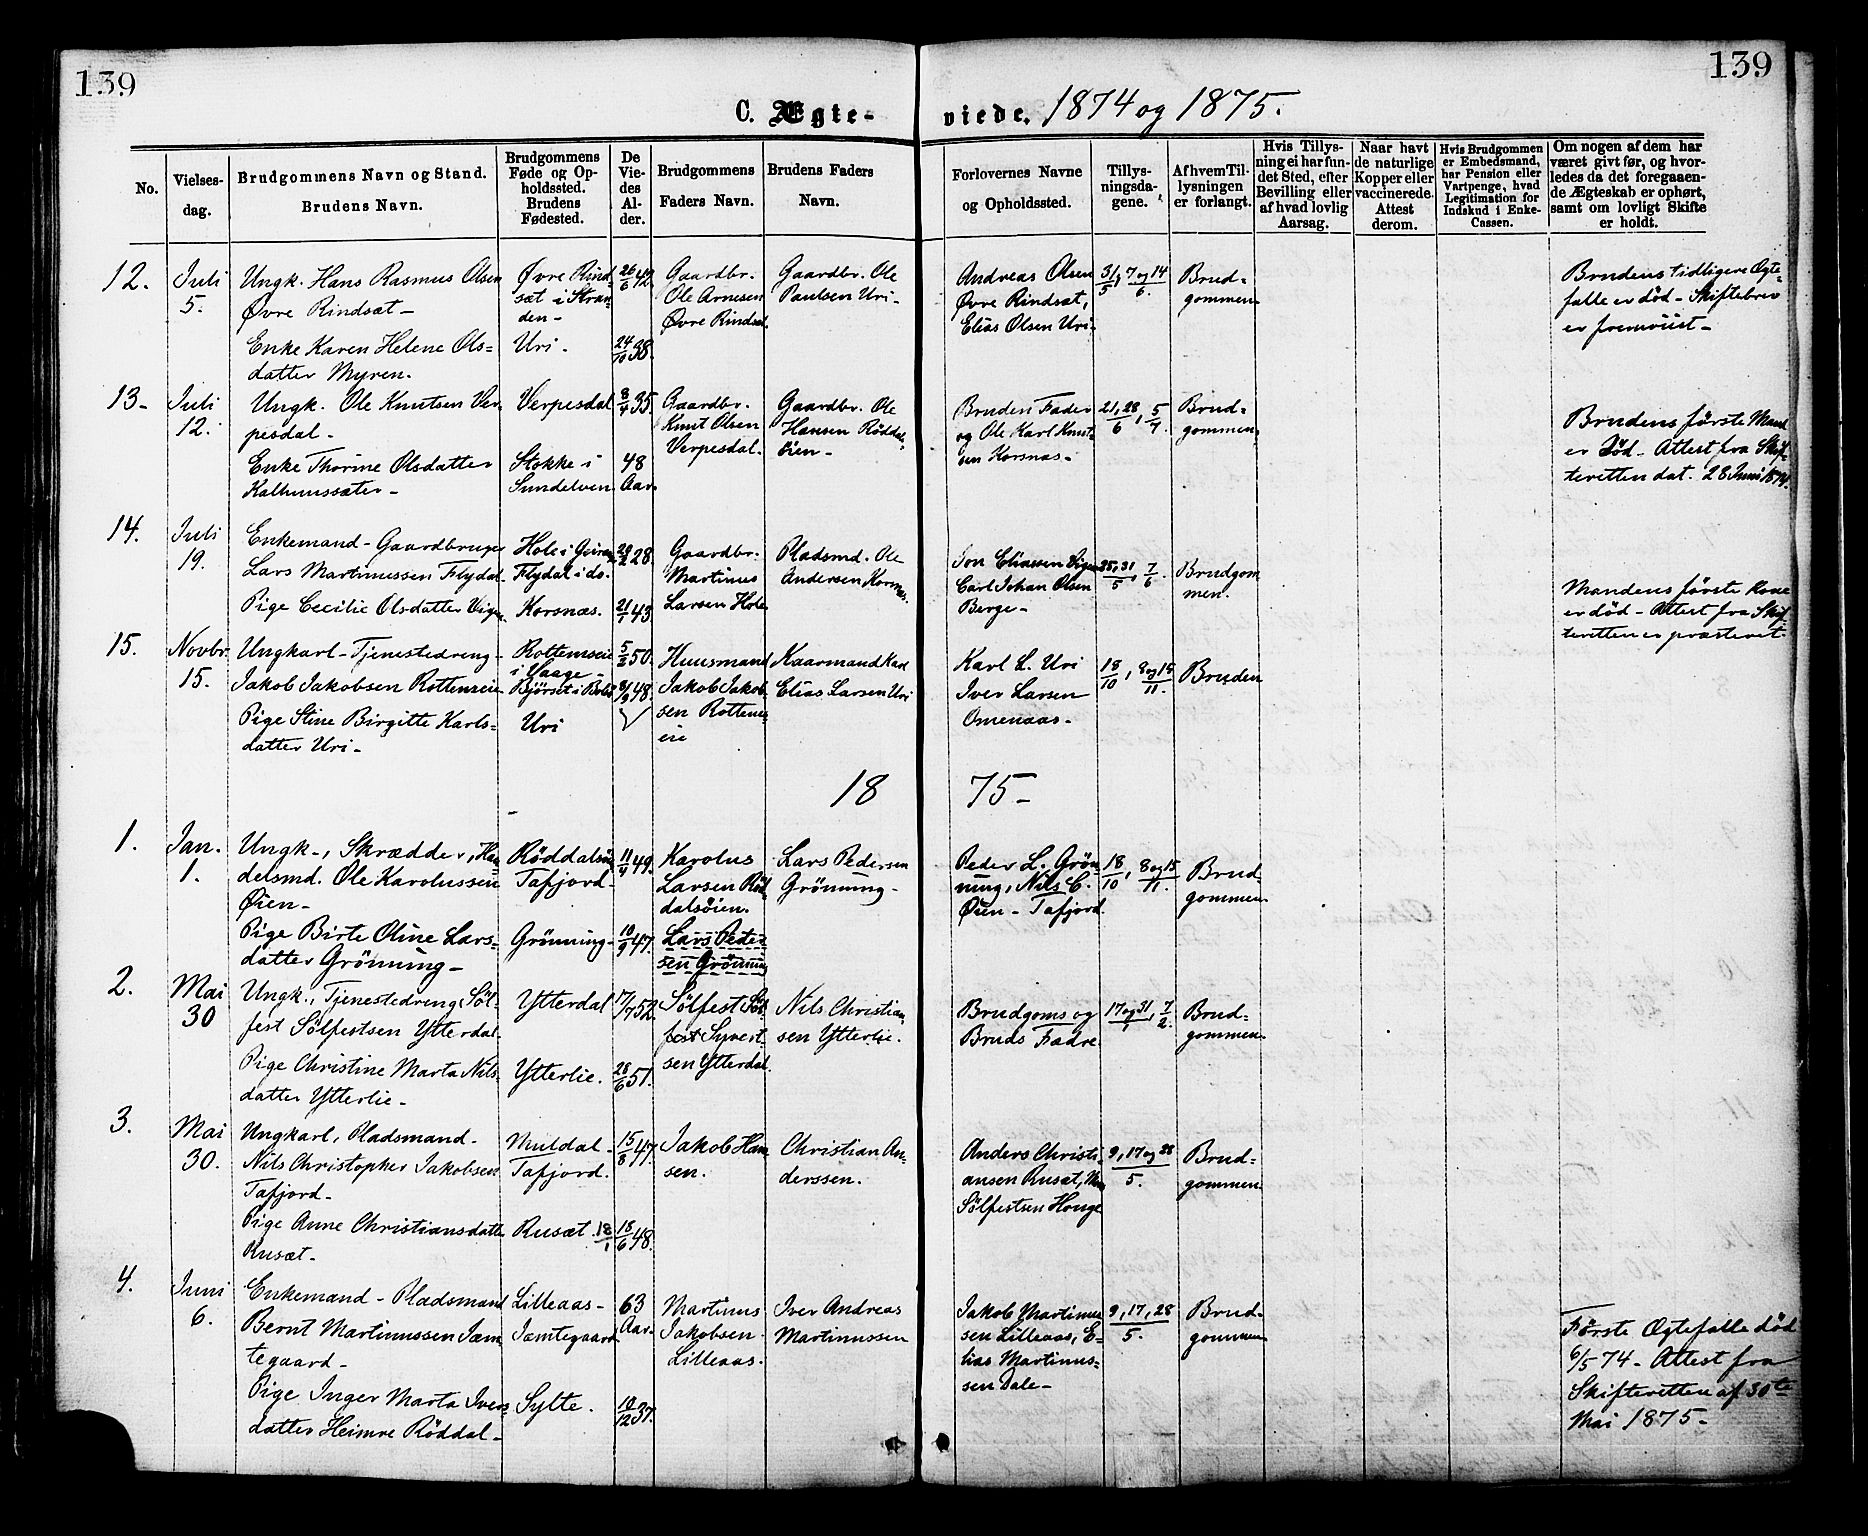 139
139
C. Ægte-
viede. 1874 og 1875.
No.
Vielses-
dag.
Brudgommens Navn og Stand.
Brudens Navn.
Brudgommens
Føde og Op-
holdssted.
Brudens
Fødested.
De
Vie-
des
Al-
der.
Brudgommens
Faders Navn.
Brudens Faders
Navn.
Forlovernes Navne
og Opholdssted.
Tillys-
ningsda-
gene.
Af hvem Til-
lysningen
er forlangt.
Hvis Tillys-
ning ei har fun-
det Sted, efter
Bevilling eller
af hvad lovlig
Aarsag.
Naar havt
de naturlige
Kopper eller
vaccinerede.
Attest
derom.
Hvis Brudgommen
er Embedsmand,
har Pension eller
Vartpenge, hvad
Legitimation for
Indskud i Enke-
Cassen.
Om nogen af dem har
været givt før, og hvor-
ledes da det foregaaen-
de Ægteskab er ophørt,
samt om lovligt Skifte
er holdt.
12.
Juli
5.
Ungk. Hans Rasmus Olsen
Øvre Rindsæt -
Enke Karen Helene Ols-
datter Myren.
Øvre Rind-
sæt i Stran-
den -
Uri.
26/6 42.
24/10 38.
Gaardbr.
Ole Arnesen
Øvre Rindsæt
Gaardbr. Ole
Paulsen Uri -
Andreas Olsen
Øvre Rindsæt,
Elias Olsen Uri.
31/5, 7 og 14/6.
Brud-
gommen
Brudens tidligere Ægte-
falle er død - Skiftebrev
er fremviist -
13 -
Juli
12.
Ungk. Ole Knutsen Ver-
pesdal -
Enke Thorine Olsdatter
Kalhussæter -
Verpesdal
Stokke i
Sundelven
8/4 35.
48
Aar
Gaardbr.
Knut Olsen
Verpesdal.
Gaardbr. Ole
Hansen Røddal-
øien -
Bruden Fader
og Ole Karl Knut-
sen Korsnæs -
21, 28/6, 5/7.
Brud-
gommen
Brudens første Mand
er død - Attest fra Skif-
teretten dat. 28 Juni 1874.
14.
Juli
19.
Enkemand - Gaardbruger
Lars Martinussen Flydal
Pige Cecilie Olsdatter Vigen
Hole i
Flydal i do.
Korsnæs.
28.
21/1 43
Gaardbr.
Martinus
Larsen Hole
Pladsmd. Ole
Andersen Korsnæs.
Jon Eliassen Vigen
Carl Johan Olsen
Berge -
25, 31/5, 7/6.
Brudgom
men.
Mandens første Kone
er død - Attest fra Skif-
teretten er præsteret -
15.
Novbr.
15.
Ungkarl - Tjenestedreng -
Jakob Jakobsen Rottemeie
Pige Stine Birgitte Karls-
datter Uri -
Rottemeie
i Vaage -
Bjørset i Bolsø
Uri
5/2 50.
48.
Huusmand
Jakob Jakob-
sen Rottem-
eie
Kaarmand Karl
Elias Larsen Uri
Karl L. Uri
Iver Larsen
Omenaas -
18/10, 8 og 15/11.
Bruden
18
75 -
1.
Jan.
1.
Ungk -, Skrædder, Han-
delsmd. Ole Karolussen
Øien -
Pige Birte Oline Lars-
datter Grönning -
Røddalsøi
Tafjord -
Grönning -
11/4 49.
10/9 47.
Karolus
Larsen Rød-
dalsøien.
Lars Peder
sen Grönning
Lars Pedersen
Grönning -
Peder L. Grön-
ning, Nils C.
Øien - Tafjord
18/10, 8 og 15/11.
Brud-
gommen
2.
Mai
30
Ungk., Tjenestedreng Søl-
fest Sølfestsen Ytterdal
Pige Christine Marta Nils-
datter Ytterlie -
Ytterdal
Ytterlie.
17/7 52.
28/6 51.
Sølfest Søl-
fest Syvert
sen Ytterdal.
Nils Christian-
sen Ytterlie.
Brudgoms og
Bruds Fædre
17 og 31/1, 7/2.
Brud-
gommen
3.
Mai
30.
Ungkarl, Pladsmand -
Nils Christopher Jakobsen
Tafjord -
Pige Anne Christiansdatter
Rusæt -
Muldal -
Tafjord.
Rusæt. 18/1
15/8 47.
18/6 48.
Jakob Han
sen.
Christian An-
derssen.
Anders Christi-
ansen Rusæt,
Sølfestsen Houge
9, 17 og 28/5.
Brud-
gommen
4.
Juni
6.
Enkemand - Pladsmand
Bernt Martinussen Jæm-
tegaard -
Pige Inger Marta Ivers-
datter Heimre Røddal -
Lilleaas -
Jæmtegaard
Sylte.
63
Aar
10/12 37.
Martinus
Jakobsen
Lilleaas.
Iver Andreas
Martinussen
Jakob Martinus
sen Lilleaas, E-
lias Martinus-
sen Dale -
9, 17, 28/5.
Brud-
gommen
Første Ægtefalle død
6/5 74 - Attest fra
Skifteretten af 30te
Mai 1875 -